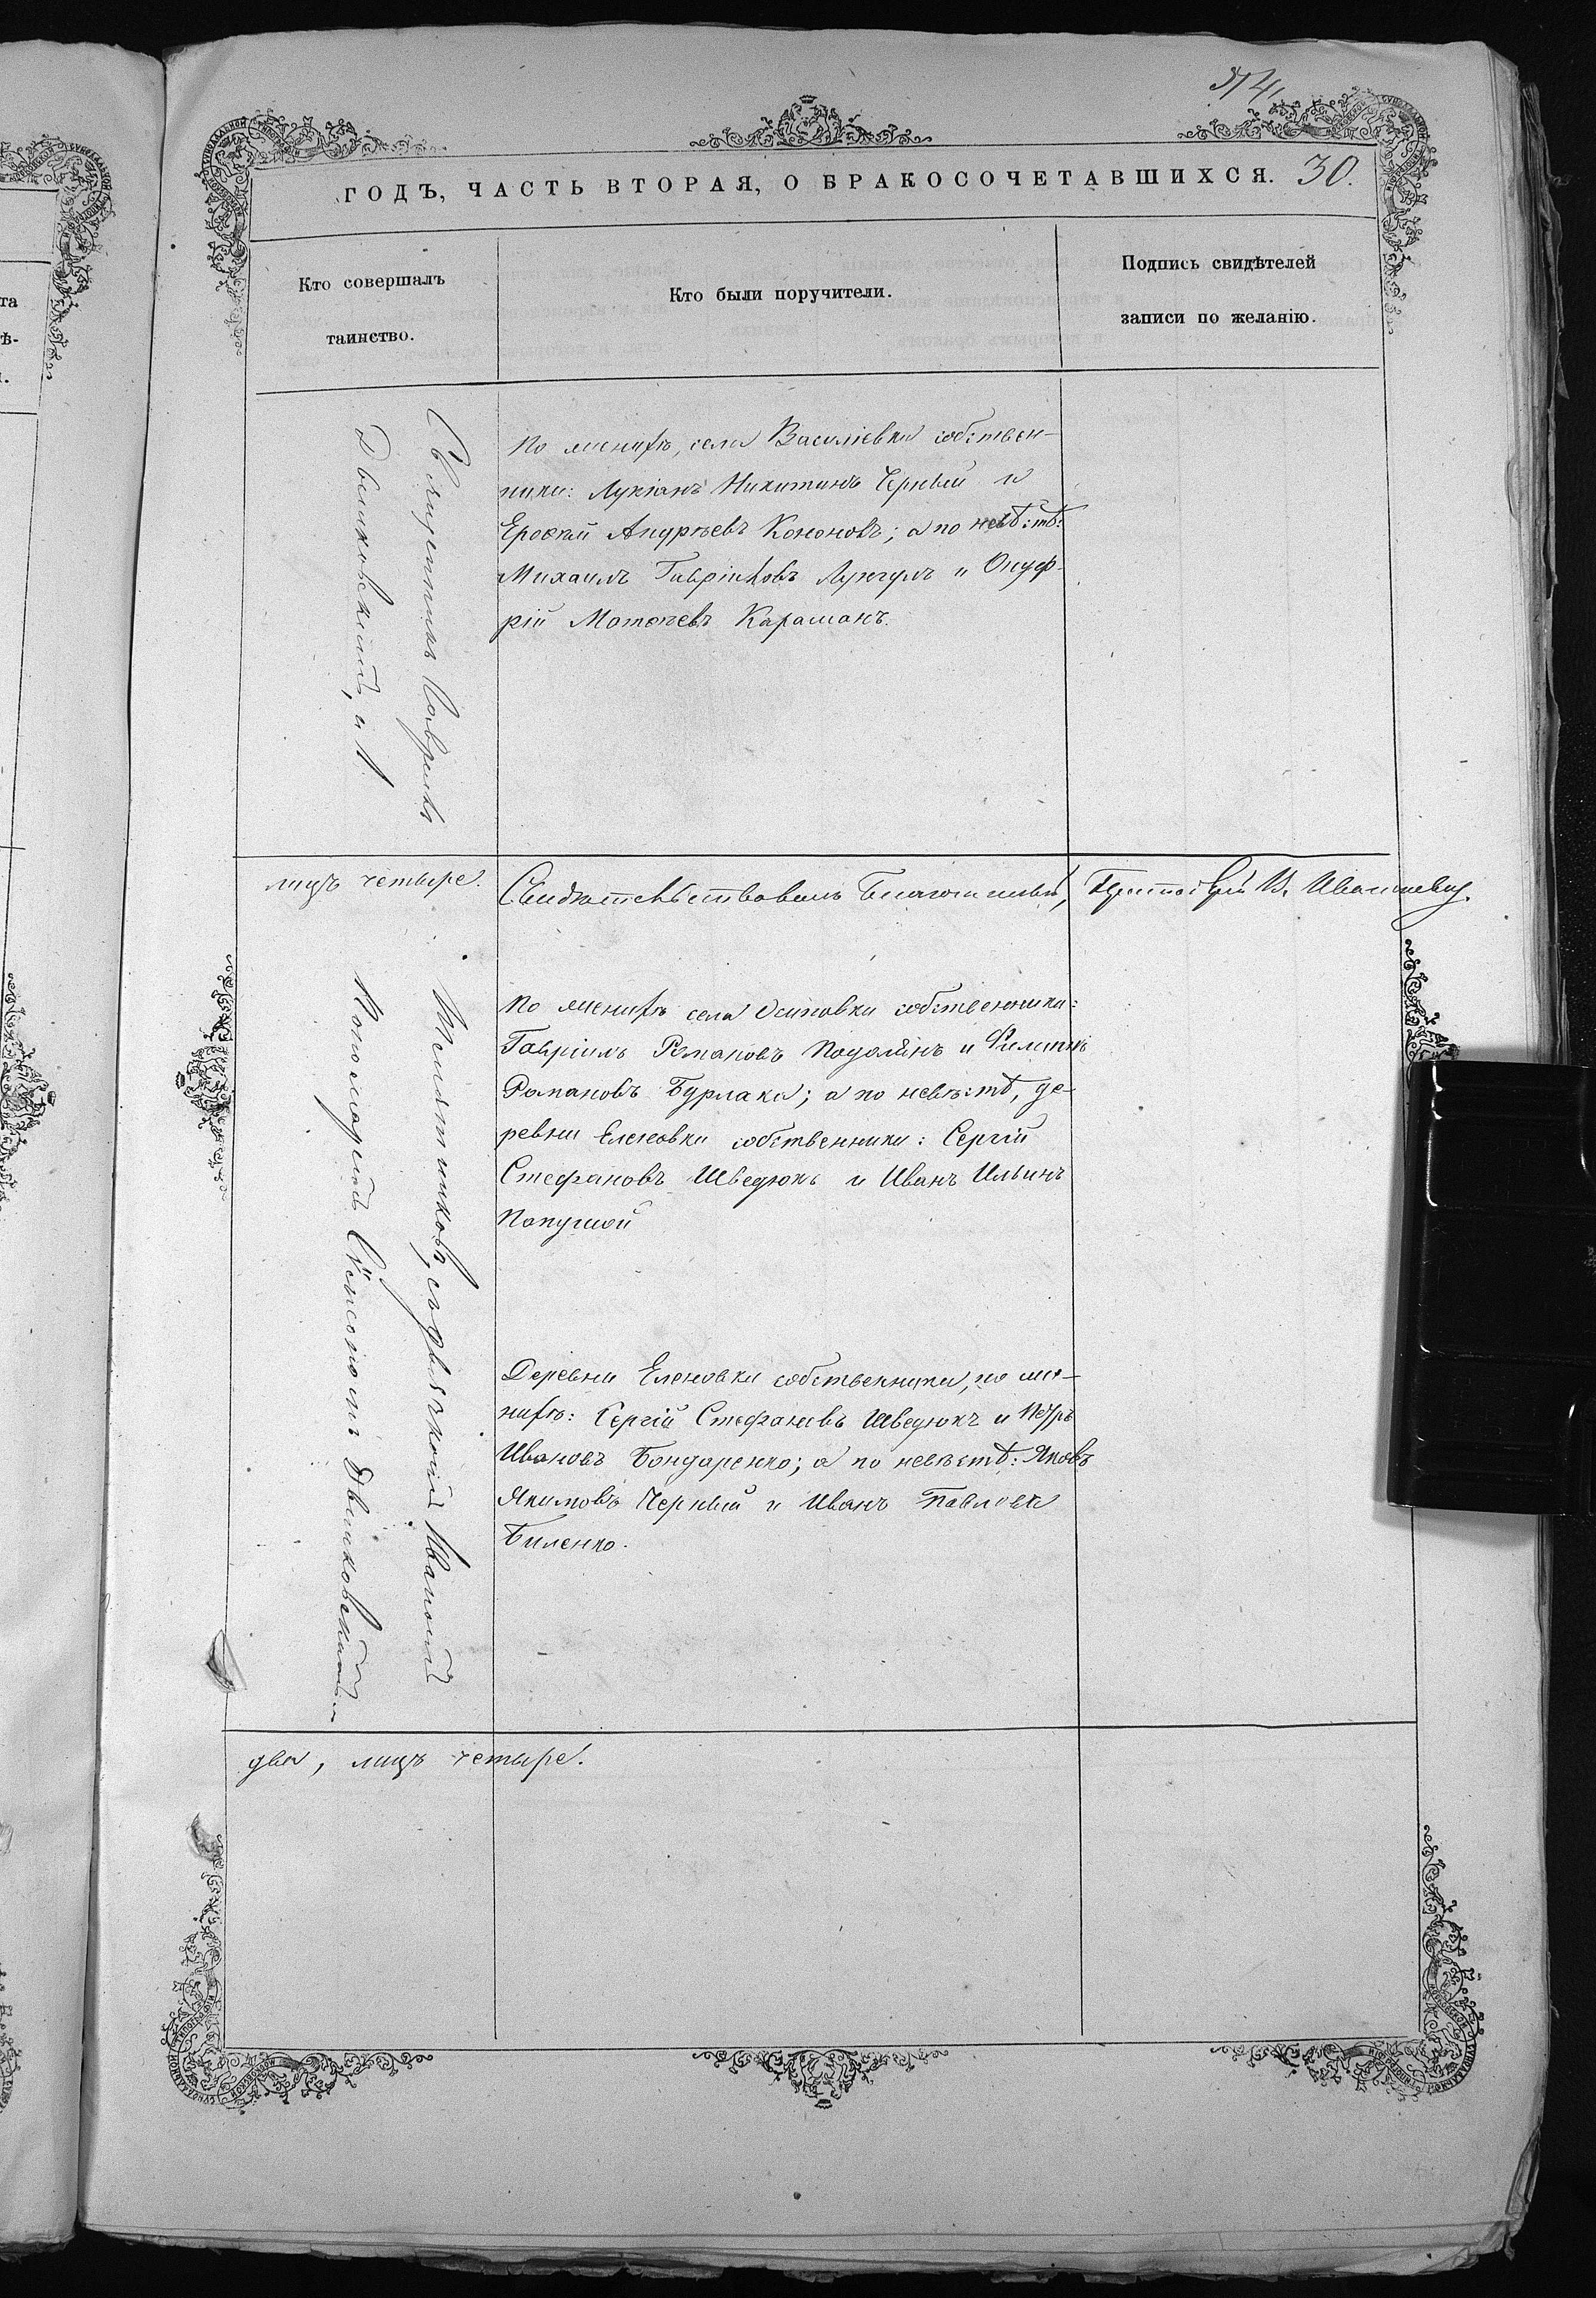 314
ГОДЪ, ЧАСТЬ ВТОРАЯ, О БРАКОСОЧЕТАВШИХСЯ. 30.
Кто совершалъ
таинство.
Кто были поручители.
Подпись свидѣтелей
записи по желанію.
Священникъ Гавріилъ
Двинковскій, и І
По женихѣ, села Василіевки собствен-
ники: Лукіанъ Никитинъ Черный и
Ерофѣй Андреевъ Кононовъ; а по невѣстѣ:
Михаилъ Гавріиловъ Лунгулъ и Онуф-
рій Матѳеевъ Караманъ.
лицъ четыре.
Свидѣтельствовалъ Благочинный, Протоіерей В. Ивашевич
съ Дьячкомъ Иваномъ
Пономаремъ Симеономъ Двинковскимъ
По женихѣ села Осиповки собственники:
Гавріилъ Романовъ Подолянъ и Филиппъ
Романовъ Бурлака; а по невѣстѣ, де-
ревни Еленовки собственники: Сергій
Стефановъ Шведюкъ и Иванъ Ильинъ
Папушой
Деревни Еленовки собственники, по же-
нихѣ: Сергій Стефановъ Шведюкъ и Петръ
Ивановъ Бондаренко; а по невѣстѣ: Яковъ
Якимовъ Черный и Иванъ Павловъ
Биленко.
два, лицъ четыре.